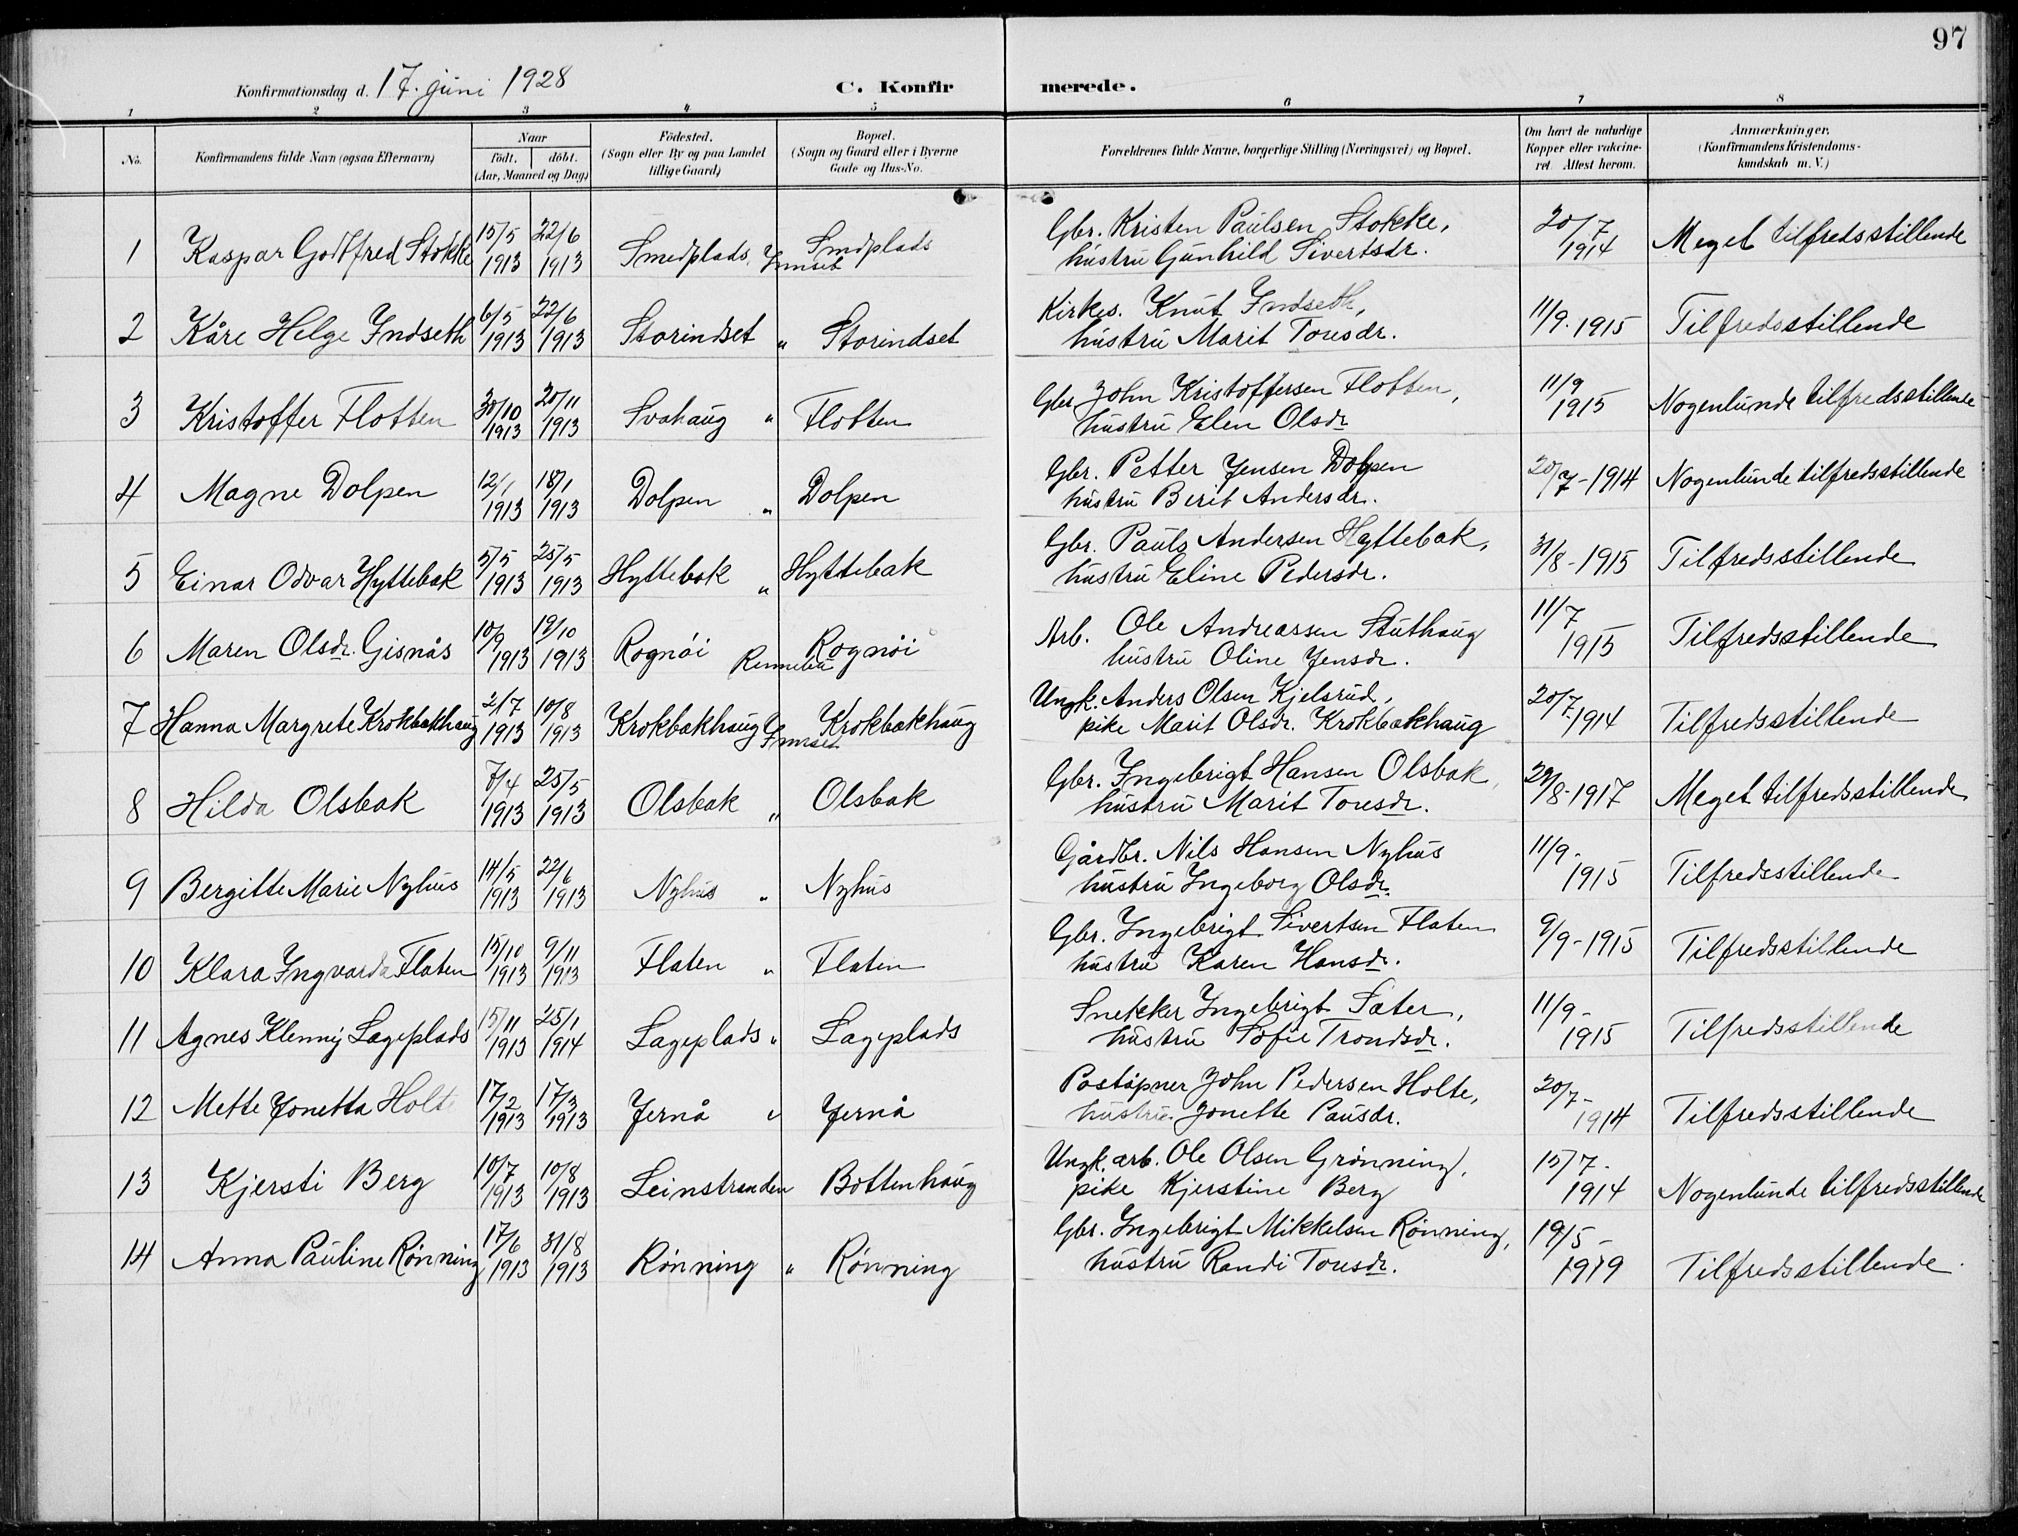 97
Konfirmationsdag d. 17. juni 1928 C. Konfirmerede.
1 2 3 4 5 6 7 8
No. Konfirmandens fulde Navn (ogsaa Efternavn) Naar født. døbt. (Aar, Maaned og Dag) Fødested. (Sogn eller By og paa Landet tillige Gaard) Bopæl. (Sogn og Gaard eller i Byerne Gade og Hus-No. Forældrenes fulde Navne, borgerlige Stilling (Næringsvei) og Bopæl. Om havt de naturlige Kopper eller vakcineret. Attest herom. Anmærkninger. (Konfirmandens Kristendomskundskab m. V.)
1 Kaspar Godtfred Stokke 15/5 1913 22/6 1913 Smedplads, Innset Smdplads Gbr. Kristen Paulsen Stokke, hustru Gunhild Sivertsdr. 20/7 1914 Meget tilfredsstillende
2 Kåre Helge Indseth 6/5 1913 22/6 1913 Storindset " Storindset Kirkes. Knut Indseth, hustru Marit Toresdr. 11/9. 1915 Tilfredsstillende
3 Kristoffer Flotten 30/10 1913 20/11 1913 Svahaug " Flotten Gbr John Kristoffersen Flotten, hustru Elen Olsdr 11/9 1915 Nogenlunde tilfredsstillende
4 Magne Dolpen 12/1 1913 18/1 1913 Dolpen " Dolpen Gbr. Petter Jensen Dolpen hustru Berit Andersdr. 20/7-1914 Nogenlunde tilfredsstillende
5 Einar Odvar Hyttebak 5/5 1913 25/5 1913 Hyttebak " Hyttebak Gbr. Pauls Andersen Hyttebak, hustru Eline Pedersdr. 31/8-1915 Tilfredsstillende
6 Maren Olsdr. Gisnås 10/9 1913 19/10 1913 Rognöi Rennebu Rognöi Arb. Ole Andreassen Stuthaug hustru Oline Jensdr. 11/7 1915 Tilfredsstillende
7 Hanna Margrete Krokbakhaug 2/7 1913 10/8 1913 Krokbakhaug Innset Krokbakhaug Ungk. Anders Olsen Kjelsrud, pike Marit Olsdr. Krokbakhaug 20/7. 1914 Tilfredsstillende
8 Hilda Olsbak 7/4 1913 25/5 1913 Olsbak " Olsbak Gbr. Ingebrigt Hansen Olsbak, hustru Marit Toresdr. 29/8-1917 Meget tilfredsstillende
9 Bergitte Marie Nyhus 14/5 1913 22/6 1913 Nyhus " Nyhus Gårdbr. Nils Hansen Nyhus hustru Ingeborg Olsdr. 11/9- 1915 Tilfredsstillende
10 Klara Ingvarda Flaten 15/10 1913 9/11 1913 Flaten " Flaten Gbr. Ingebrigt Sivertsen Flaten hustru Karen Hansdr. 9/9-1915 Tilfredsstillende
11 Agnes Klenny Lageplads 15/11 1913 25/1 1914 Lageplads " Lageplads Snekker Ingebrigt Sæter, hustru Sofie Trondsdr. 11/9- 1915 Tilfredsstillende
12 Mette Jonetta Holte 17/2 1913 17/3 1913 Jernå " Jernå Postöpner John Pedersen Holte, hustru Jonette Pausdr. 20/7- 1914 Tilfredsstillende
13 Kjersti Berg 10/7 1913 10/8 1913 Leinstranden Bottenhaug Ungk. arb. Ole Olsen Grönning, pike Kjerstine Berg 15/7- 1914 Nogenlunde tilfredsstillende
14 Anna Pauline Rönning 17/6 1913 31/8 1913 Rönning " Rönning Gbr. Ingebrigt Mikkelsen Rönning, hustru Randi Toresdr. 19/5- 1919 Tilfredsstillende.